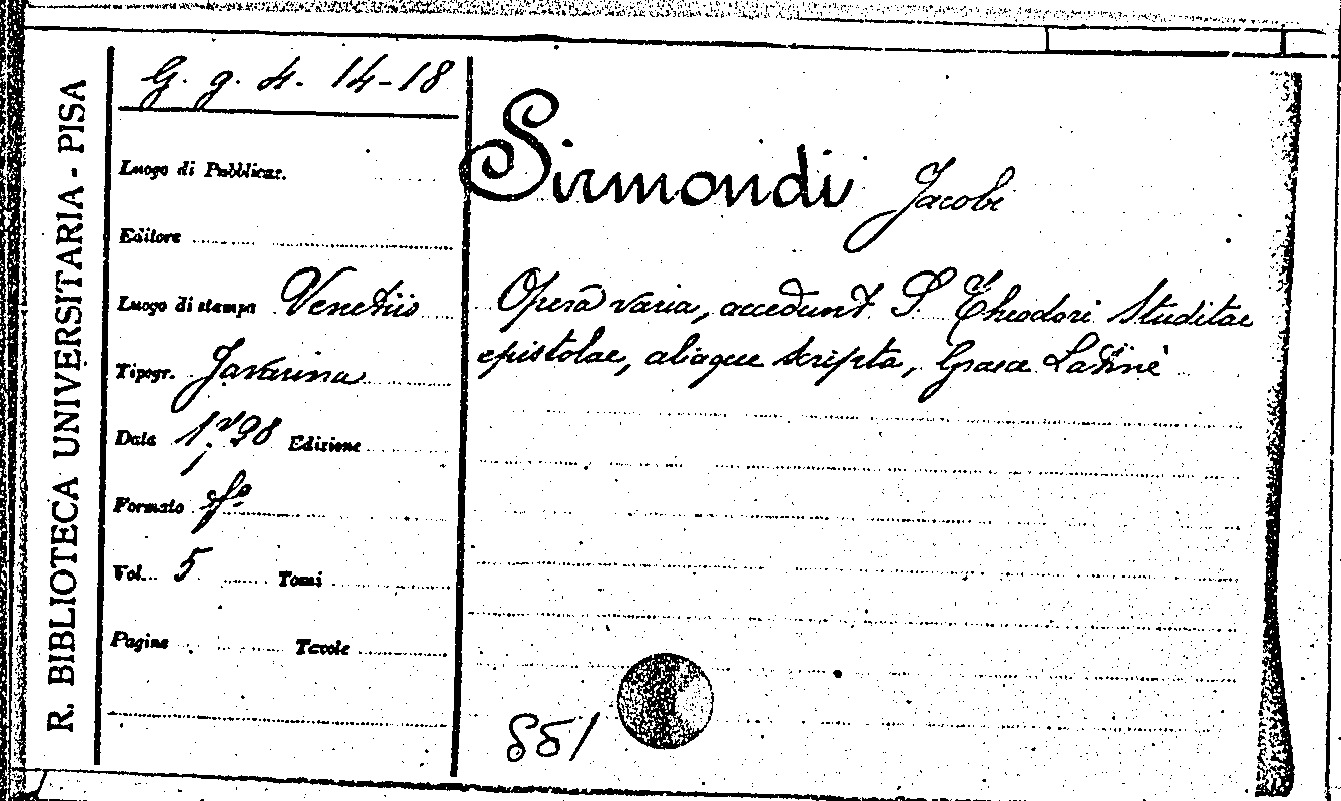 R. BIBLIOTECA UNIVERSITARIA - PISA
G. g. 4. 14-18
Luogo di Pubblicaz.
Editore
Luogo di stampa Venetiis
Tipogr. Javarina
Data 1728 Edizione
Formato fº
Vol. 5 Tomi
Pagine Tavole
Sirmondi Jacobi
Opera varia, accedunt S. Theodori Studitae
epistolae, aliaque scripta, Graece Latinè
851